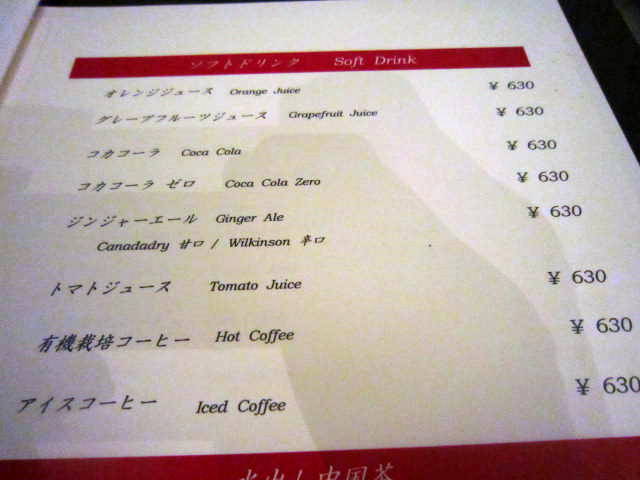 ソフトドリンク Soft Drink
オレンジジュース Orange Juice ¥ 630
グレープフルーツジュース Grapefruit Juice ¥ 630
コカコーラ Coca Cola ¥ 630
コカコーラ ゼロ Coca Cola Zero ¥ 630
ジンジャーエール Ginger Ale ¥ 630
Canadadry 甘口 / Wilkinson 辛口
トマトジュース Tomato Juice ¥ 630
有機栽培コーヒー Hot Coffee ¥ 630
アイスコーヒー Iced Coffee ¥ 630
水出し中国茶